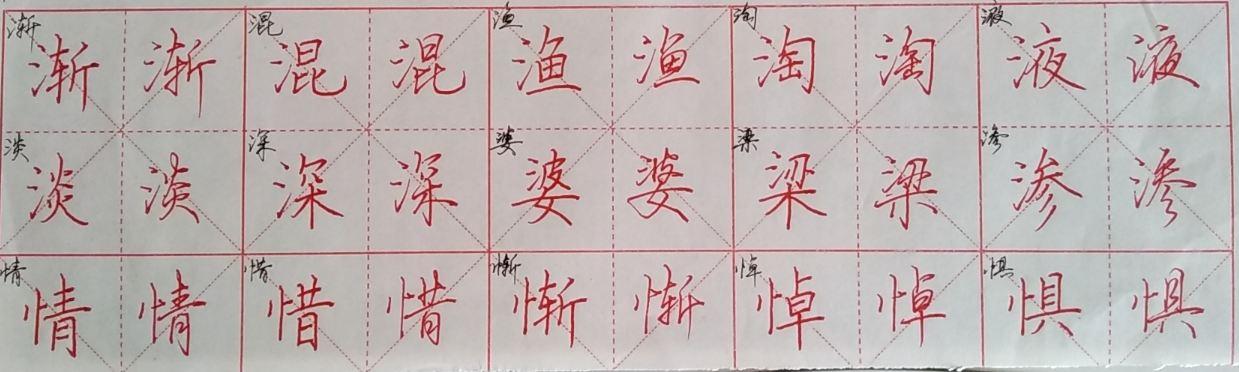 渐 渐 渐 混 混 混 渔 渔 渔 淘 淘 淘 液 液 液
淡 淡 淡 深 深 深 婆 婆 婆 梁 梁 梁 渗 渗 渗
情 情 情 惜 惜 惜 惭 惭 惭 悼 悼 悼 惧 惧 惧